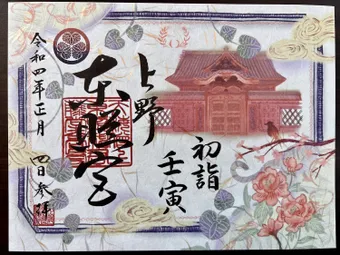 上野
東照宮
初詣
壬寅
令和四年正月
四日参拝